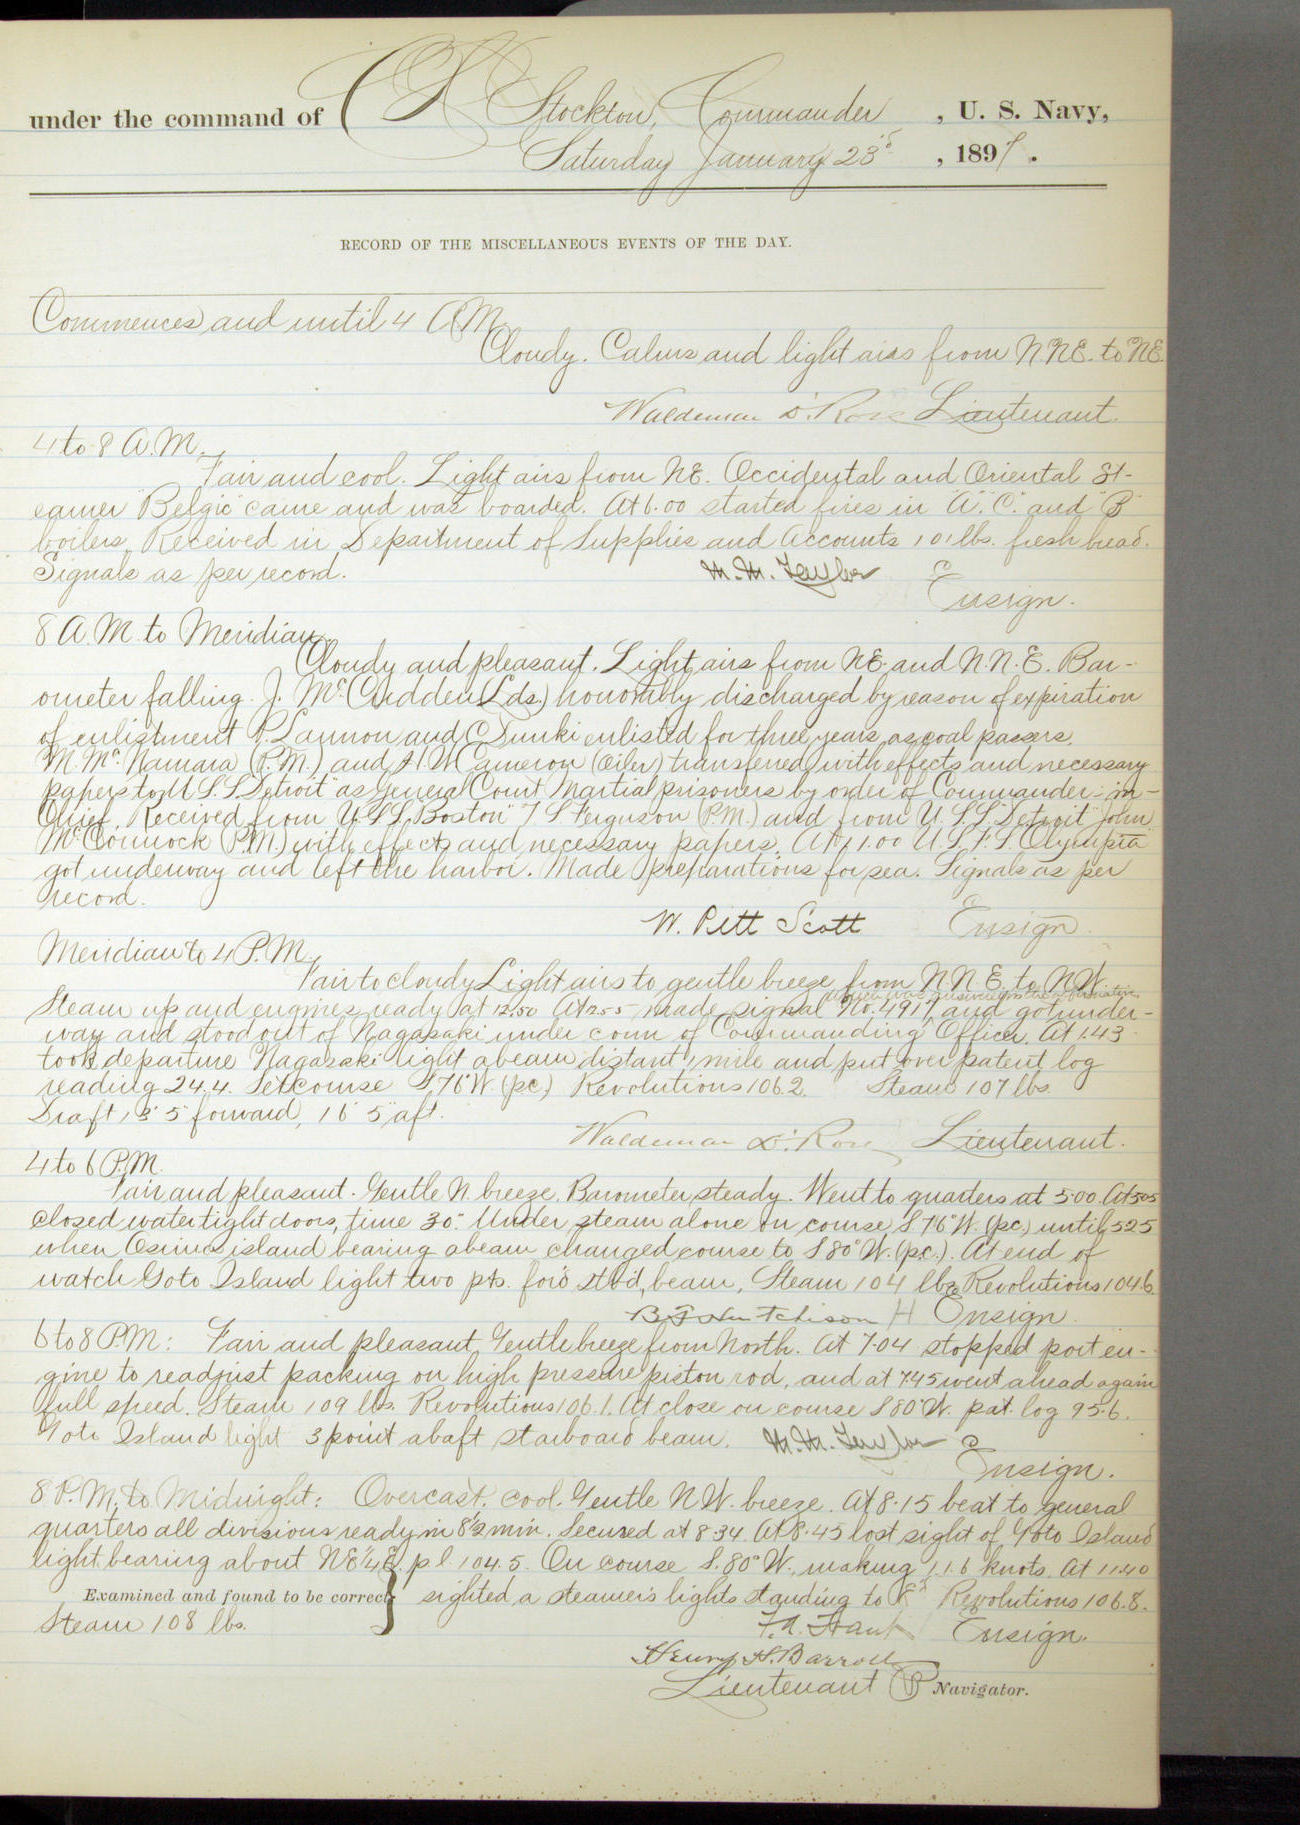 under the command of C H Stockton, Commander, U. S. Navy,
Saturday January 23d, 1897.
RECORD OF THE MISCELLANEOUS EVENTS OF THE DAY.
Commences and until 4 A.M.
Cloudy. Calms and light airs from N.N.E. to NE.
Waldemar D. Rose Lieutenant.
4 to 8 A.M.
Fair and cool. Light airs from NE. Occidental and Oriental St-
eamer "Belgic" came and was boarded. At 6.00 started fires in "A", "C" and "B"
boilers. Received in Department of Supplies and Accounts 101 lbs. fresh bread.
Signals as per record.
M. M. Taylor Ensign.
8 A.M. to Meridian.
Cloudy and pleasant. Light airs from NE and N.N.E. Bar-
ometer falling. J. McCudden (Lds.) honorably discharged by reason of expiration
of enlistment P. Lannon and C. Sunki enlisted for three years as coal passers.
M. McNamara (P.M.) and H. W. Cameron (Oiler) transferred with effects and necessary
papers to U.S.S. "Detroit" as General Court Martial prisoners by order of Commander-in-
Chief. Received from U.S.S. "Boston" T. S. Ferguson (P.M.) and from U.S.S. "Detroit" John
McCormock (P.M.) with effects and necessary papers. At 11.00 U.S.F.S. Olympia
got underway and left the harbor. Made preparations for sea. Signals as per
record.
W. Pitt Scott Ensign
Meridian to 4 P.M.
Fair to cloudy Light airs to gentle breeze from N N E to N.W.
which was answered in the affirmative
Steam up and engines ready at 12.50 At 255 made signal No. 4917, and got under-
way and stood out of Nagasaki under conn of Commanding Officer. At 1.43
took departure Nagasaki light abeam, distant 1 mile and put over patent log
reading 24.4. Set course S 76° W. (p.c.) Revolutions 106.2. Steam 107 lbs.
Draft 13' 5" forward, 16' 5" aft.
Waldemar D. Rose Lieutenant.
4 to 6 P.M.
Fair and pleasant. Gentle N. breeze. Barometer steady. Went to quarters at 5.00. At 505
closed watertight doors, time 30s. Under steam alone on course S 76° W. (pc) until 525
when island bearing abeam changed course to S 80° W. (p.c.). At end of
watch Goto Island light two pts. for'd stb'd, beam, Steam 104 lbs Revolutions 104.6
B F Hutchison Ensign
6 to 8 P.M: Fair and pleasant, Gentle breeze from North. At 7.04 stopped port en-
gine to readjust packing on high pressure piston rod, and at 745 went ahead again
full speed. Steam 109 lbs. Revolutions 106.1. At close on course S 80° W. pat. log 95.6.
Goto Island light 3 point abaft starboard beam. M. M. Taylor
Ensign.
8 P.M. to Midnight: Overcast, cool. Gentle N W. breeze. At 8.15 beat to general
quarters all divisions ready in 8½ min. Secured at 8 34. At 8.45 lost sight of Goto Island
light bearing about NE¼E. p l. 104.5. On course S. 80° W., making 11.6 knots. At 11.40
Examined and found to be correct } sighted a steamer's lights standing to Ed Revolutions 106.8.
Steam 108 lbs.
Ensign.
Henry H. Barroll
Lieutenant Navigator.